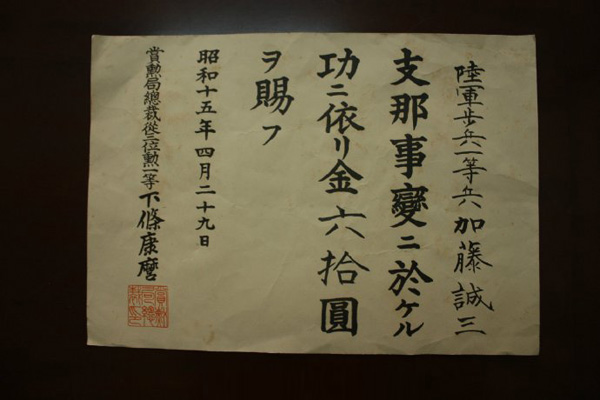 陸軍步兵一等兵加藤誠三
支那事變ニ於ケル
功ニ依リ金六拾圓
ヲ賜フ
昭和十五年四月二十九日
賞勲局總裁從三位勲一等下條康麿